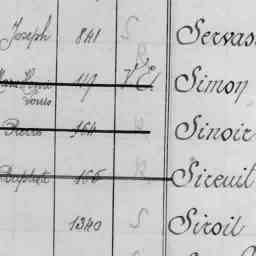 Joseph 841 S Servas
119 VE Simon
Louis
Pierre 164 Sinoir
Baptiste 166 Sireuil
1340 S Siroil